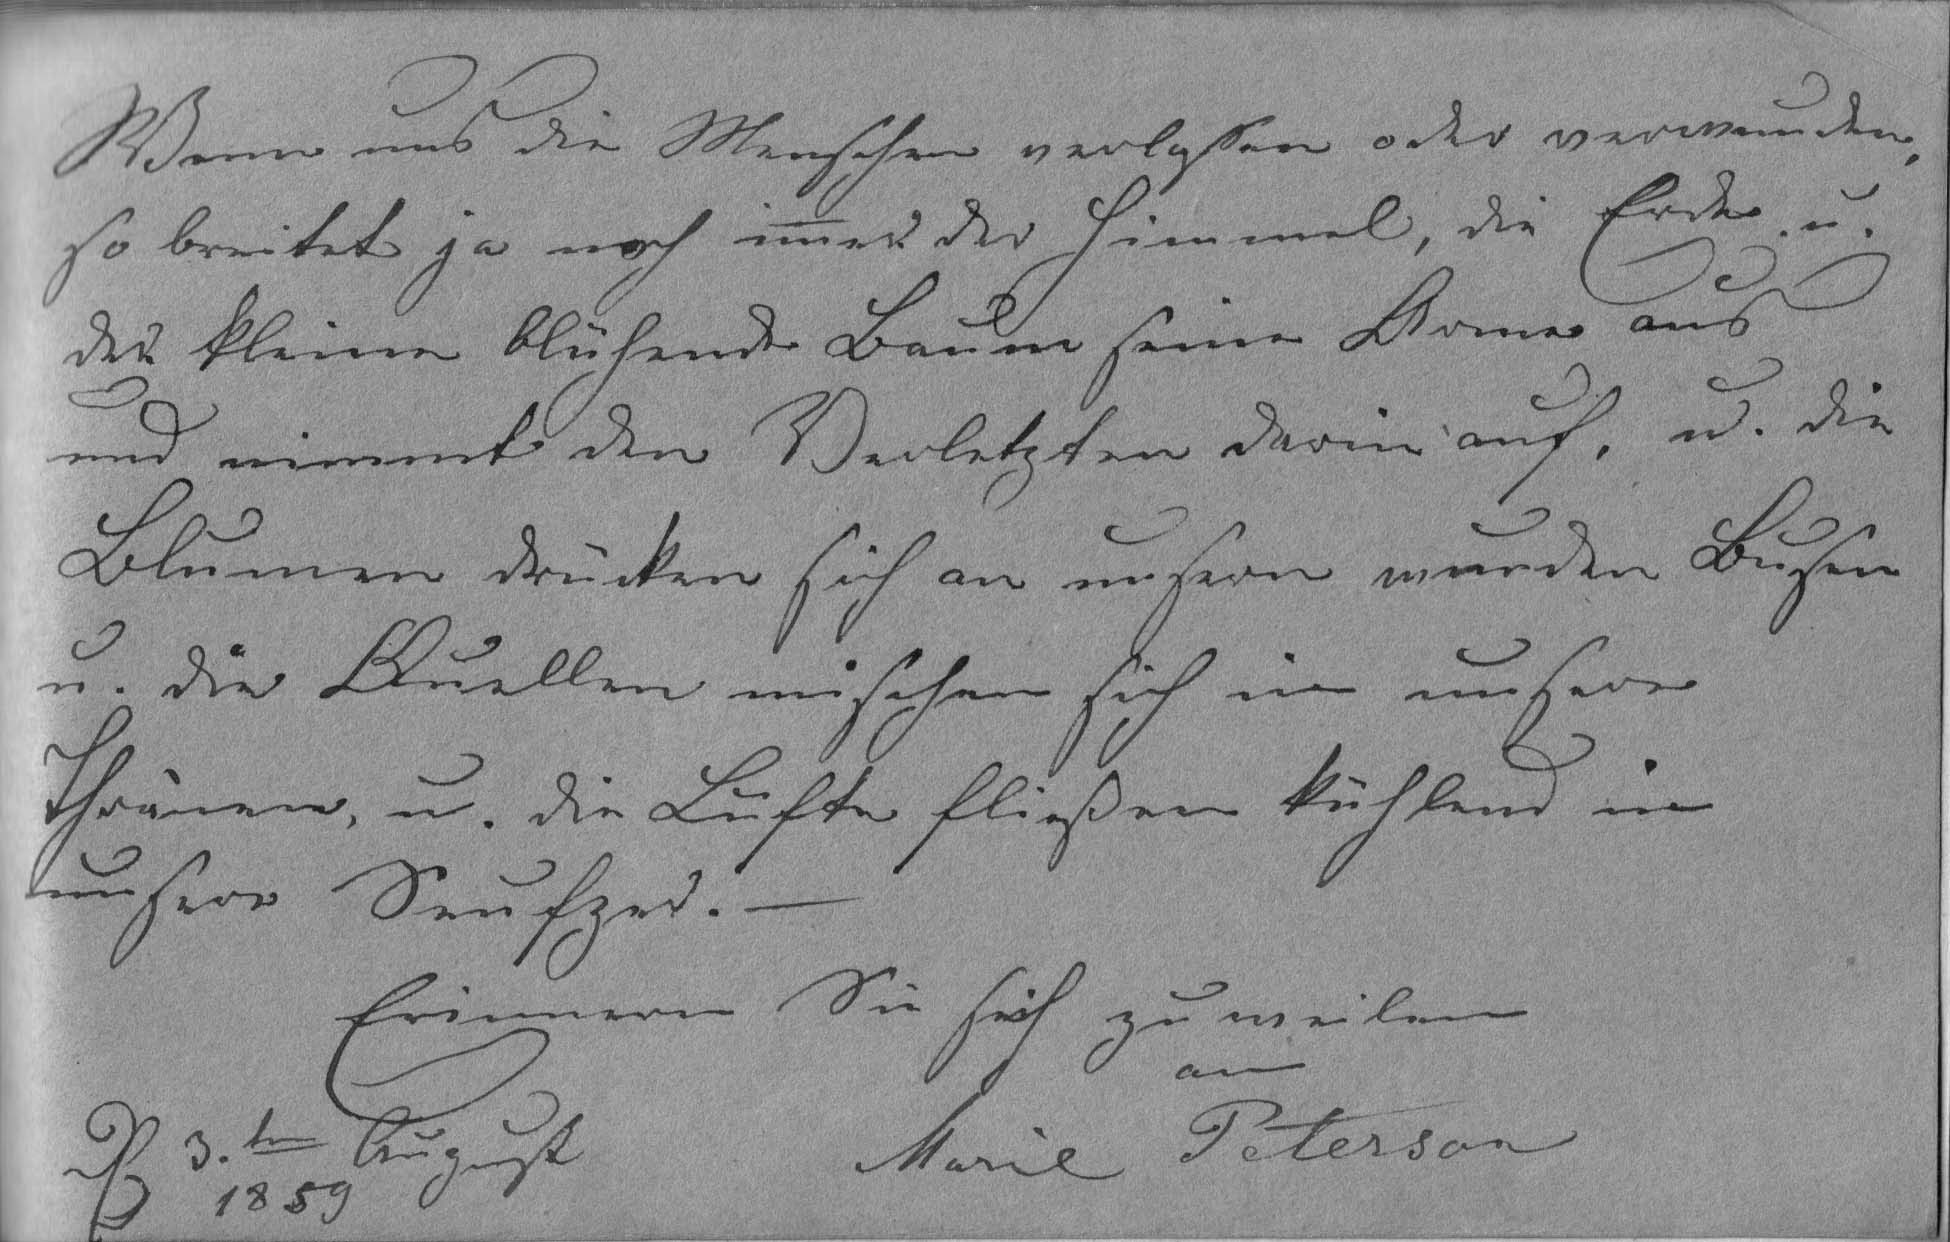 Wenn uns die Menschen verlassen oder verwunden,
so breitet ja noch im̅er der Himmel, die Erde u.
der kleine blühende Baum seine Arme aus
und nimmt den Verletzten darin auf, u. die
Blumen drücken sich an unsern wunden Busen
u. die Quellen mischen sich in unsere
Thränen, u. die Lüfte fließen kühlend in
unsere Seufzer. —
Erinnern Sie sich zuweilen
an
3.ten August Marie Peterson
1859